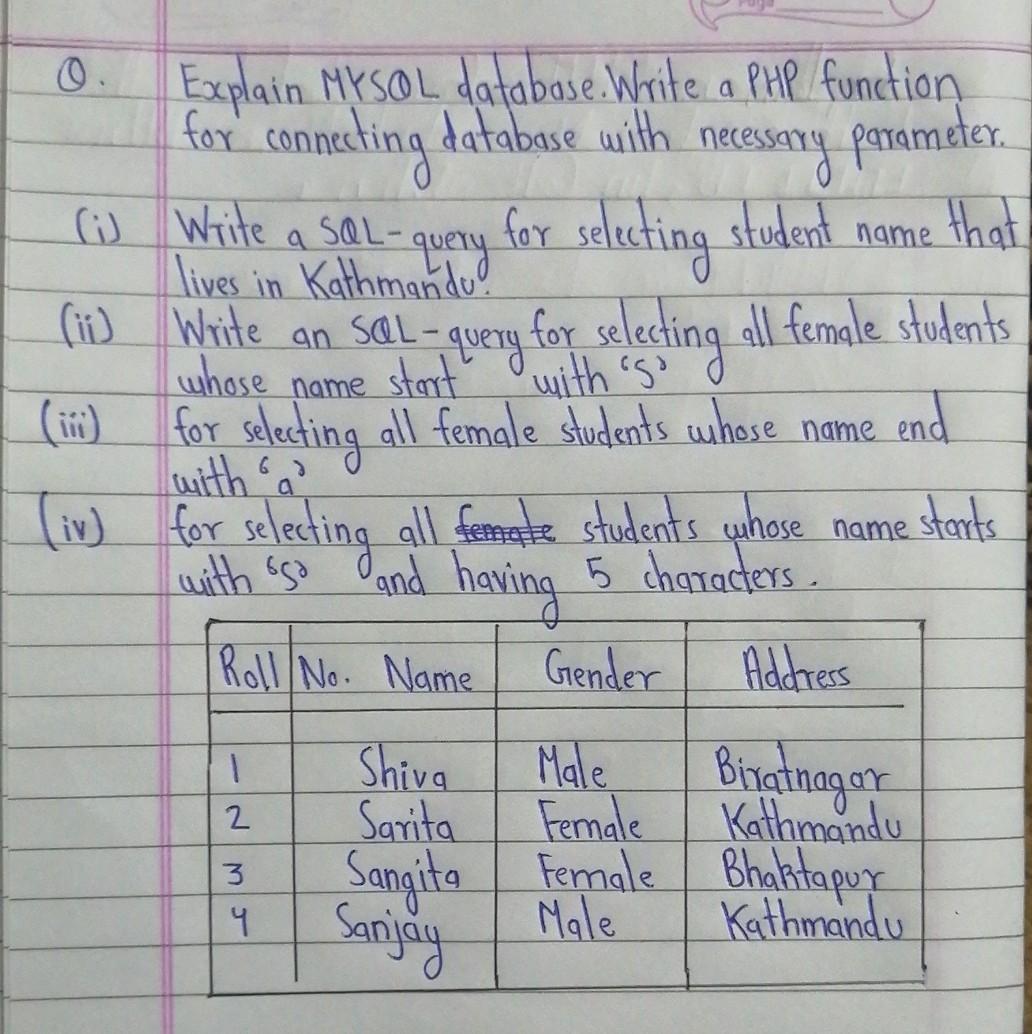 Page
Q. Explain MYSQL database. Write a PHP function
for connecting database with necessary parameter.
(i) Write a SQL-query for selecting student name that
lives in Kathmandu.
(ii) Write an SQL-query for selecting all female students
whose name start with 'S'
(iii) for selecting all female students whose name end
with 'a'
(iv) for selecting all female students whose name starts
with 'S' and having 5 characters.
Roll No. Name Gender Address
1 Shiva Male Biratnagar
2 Sarita Female Kathmandu
3 Sangita Female Bhaktapur
4 Sanjay Male Kathmandu